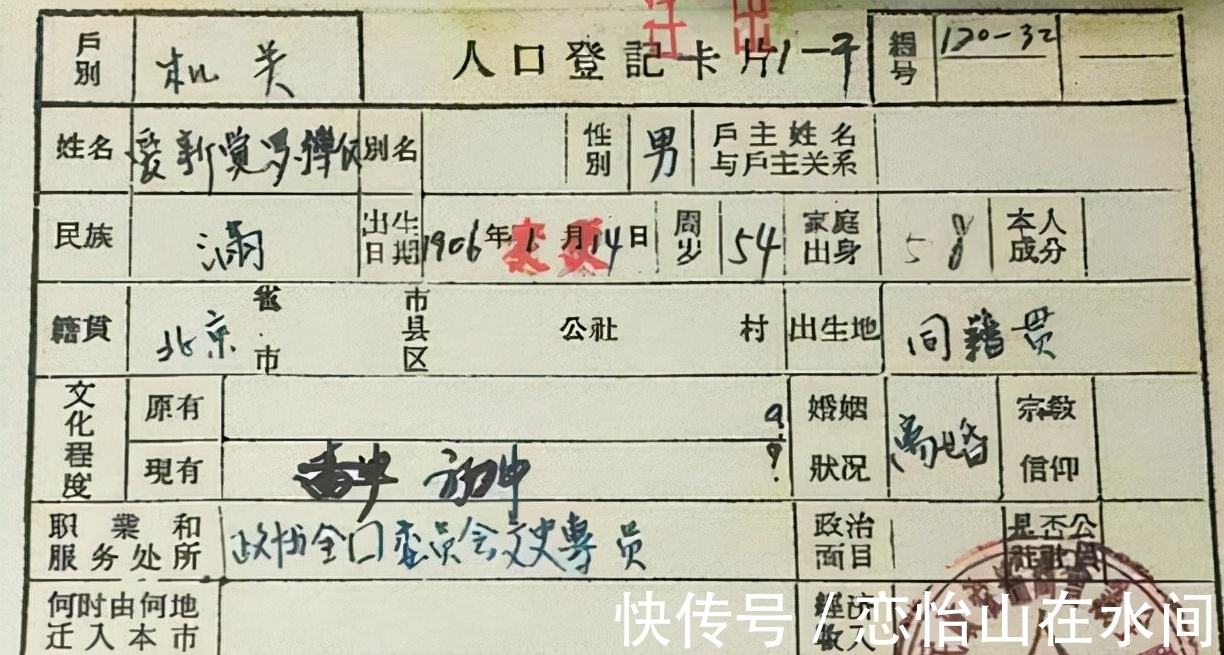 戶別 机关 人口登記卡片 1-干 編号 120-32
姓名 爱新覚罗 別名 性別 男 戶主姓名与戶主关系
民族 满 出生日期 1906年1月14日 周岁 54 家庭出身 本人成分
籍貫 北京 省市 市县区 公社 村 出生地 同籍贯
文化程度 原有
現有 初中 婚姻狀况 离婚 宗教信仰
职業和服务处所 政协全口委员会文史專员 政治面目 是否公社社員
何时由何地迁入本市 經济收入
快传号 / 恋怡山在水间